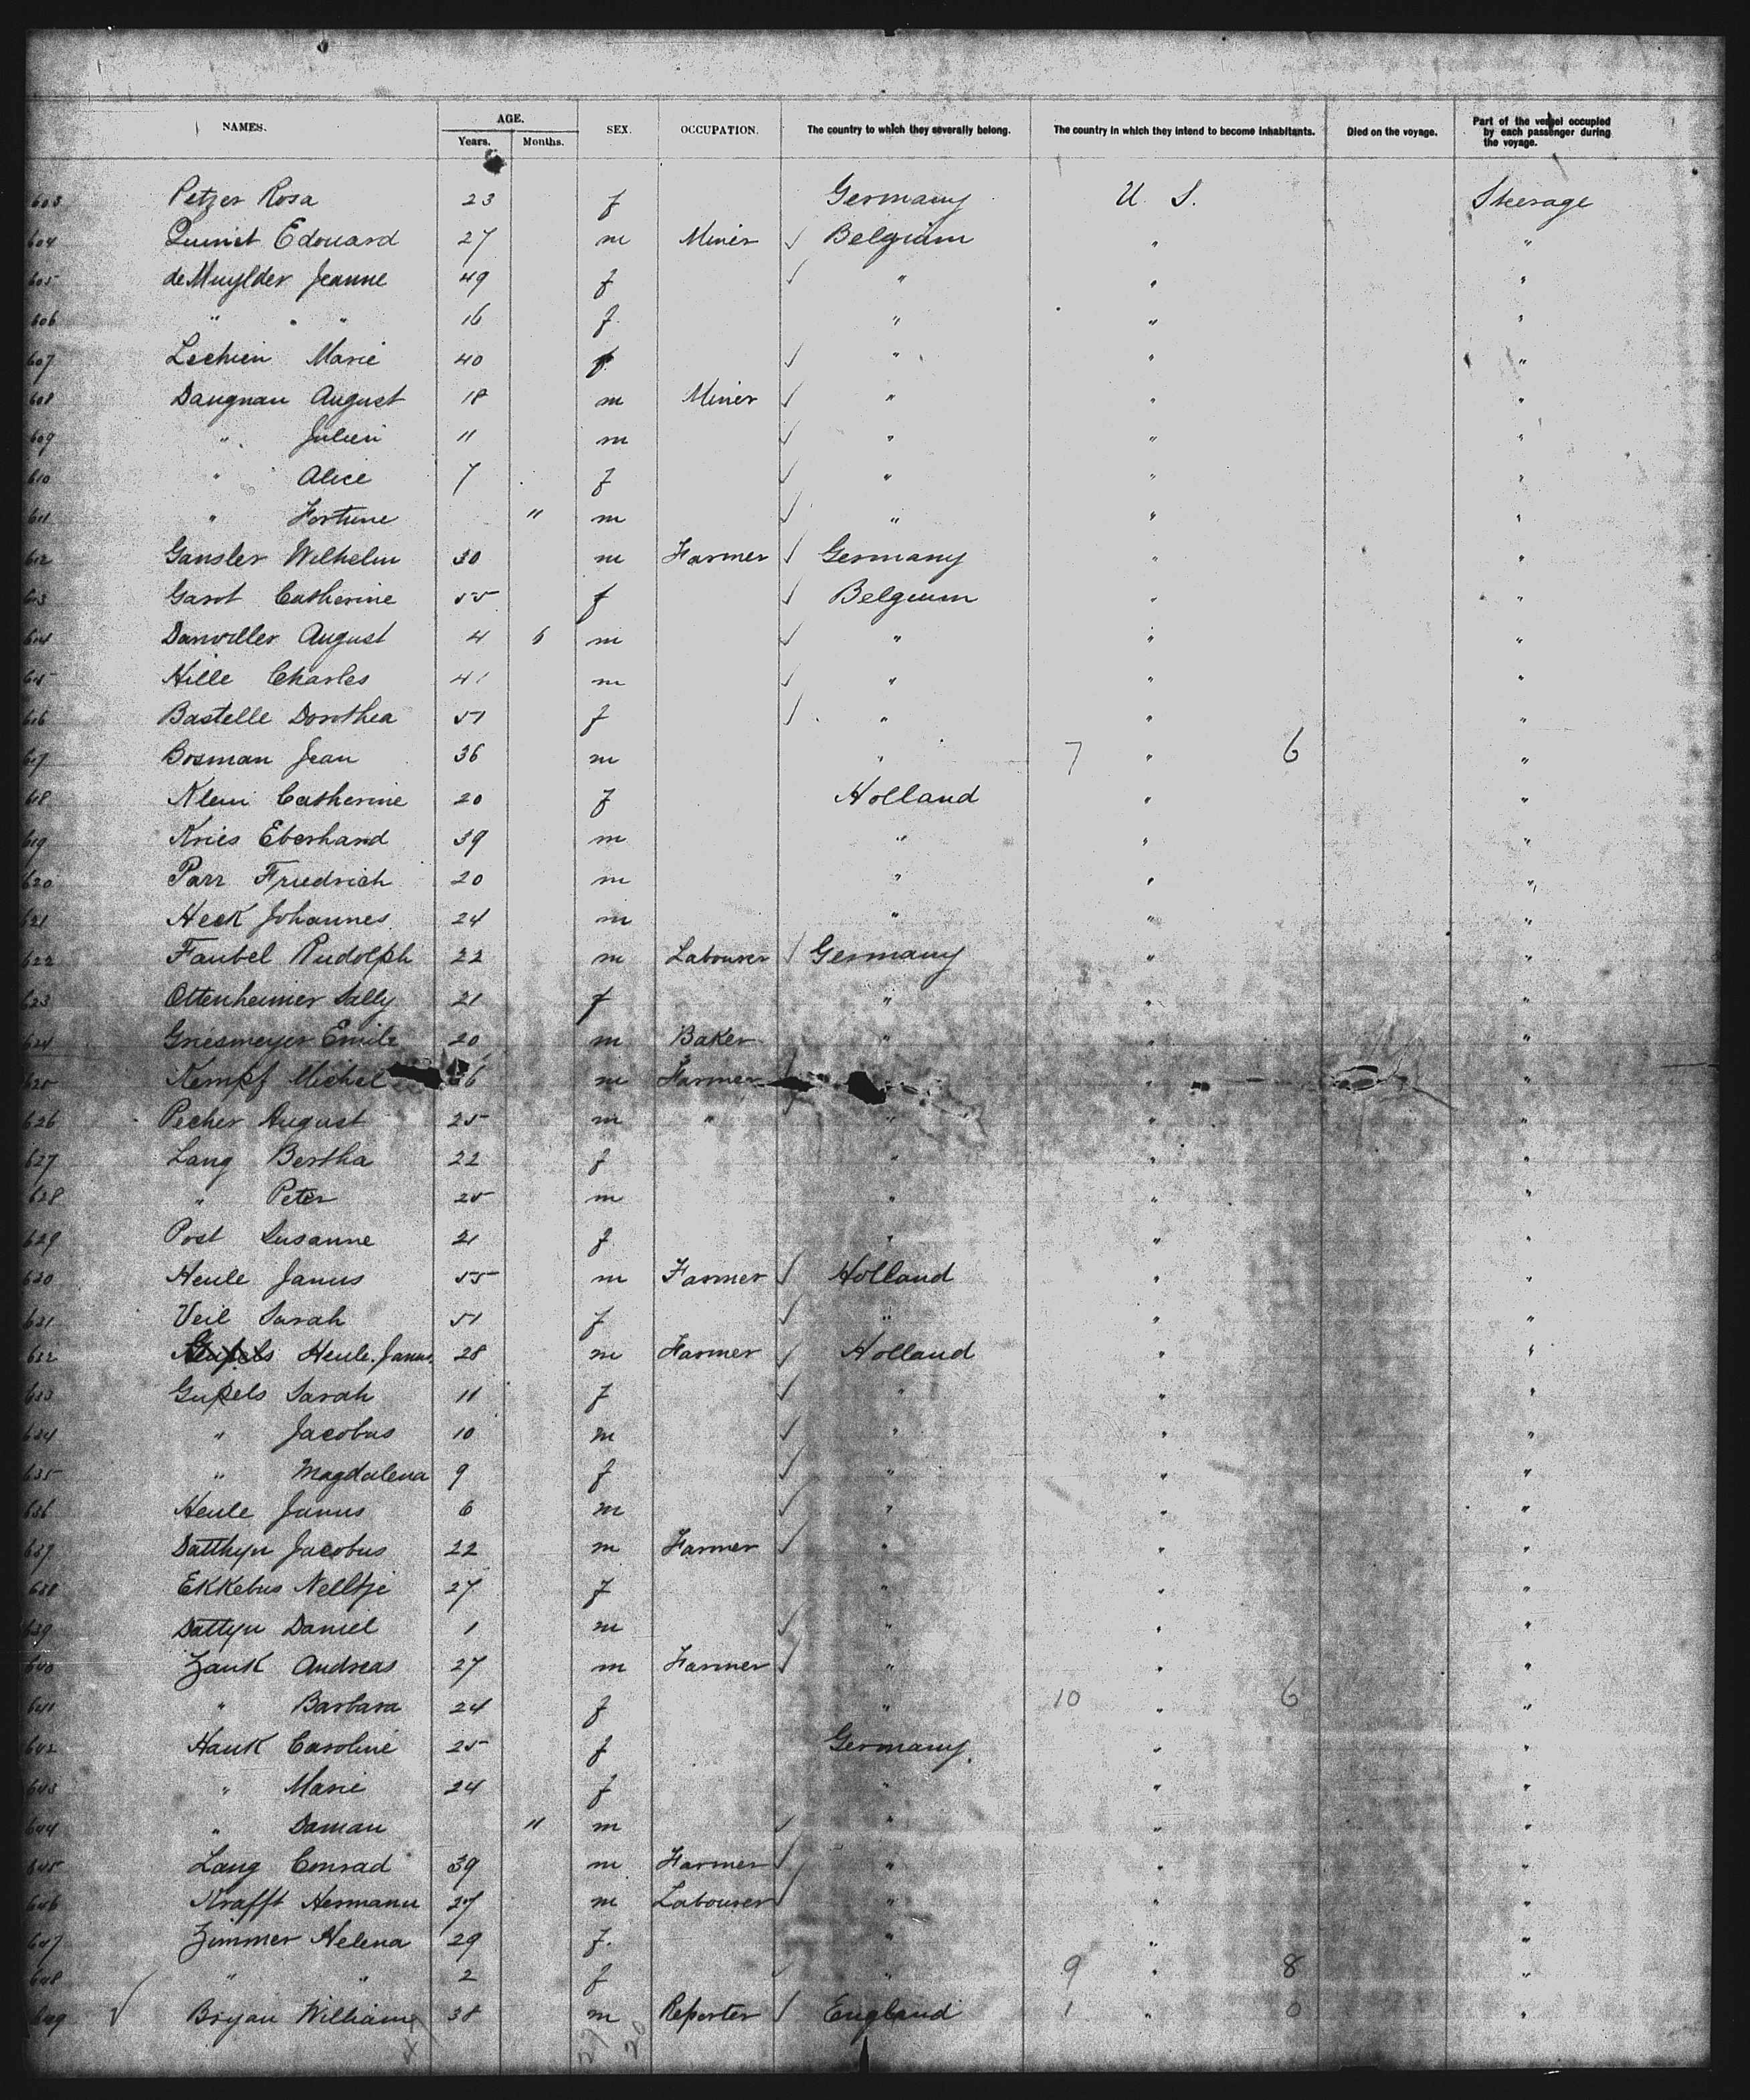 NAMES. AGE. SEX. OCCUPATION. The country to which they severally belong. The country in which they intend to become inhabitants. Died on the voyage. Part of the vessel occupied by each passenger during the voyage.
Years. Months.
603 Petzer Rosa 23 f Germany U. S. Steerage
604 Quinet Edouard 27 m Miner ✓ Belgium " "
605 de Muylder Jeanne 49 f ✓ " " "
606 " " 16 f. " " "
607 Lechien Marie 40 f ✓ " " "
608 Daugnau August 18 m Miner ✓ " " "
609 " Julien 11 m ✓ " " "
610 " Alice 7 f ✓ " " "
611 " Fortune 11 m ✓ " " "
612 Gansler Wilhelm 30 m Farmer ✓ Germany " "
613 Garot Catherine 55 f ✓ Belgium " "
614 Danviller August 4 6 m ✓ " " "
615 Hille Charles 41 m ✓ " " "
616 Bastelle Dorothea 51 f ✓ " " "
617 Bosman Jean 36 m " 7 " 6 "
618 Klein Catherine 20 f Holland " "
619 Kries Eberhard 39 m " " "
620 Parr Friedrich 20 m " " "
621 Heck Johannes 24 m " " "
622 Faubel Rudolph 22 m Labourer ✓ Germany " "
623 Ottenheimer Sally 21 f " " "
624 Griesmeyer Emile 20 m Baker " " "
625 Kempf Michel 36 m Farmer " "
626 Pecher August 25 m " " " "
627 Lang Bertha 22 f " " "
628 " Peter 25 m " " "
629 Post Susanne 21 f " " "
630 Heule Janus 55 m Farmer ✓ Holland " "
631 Veil Sarah 51 f ✓ " " "
632 Heule. Janus 28 m Farmer ✓ Holland " "
633 Gupels Sarah 11 f ✓ " " "
634 " Jacobus 10 m ✓ " " "
635 " Magdalena 9 f ✓ " " "
636 Heule Janus 6 m ✓ " " "
637 Datthyn Jacobus 22 m Farmer ✓ " " "
638 Ekkebus Nelltje 27 f " " "
639 Dattyn Daniel 1 m ✓ " " "
640 Zauk Andreas 27 m Farmer ✓ " " "
641 " Barbara 24 f " 10 " 6 "
642 Hauk Caroline 25 f Germany. " "
643 " Marie 24 f " " "
644 " Damian 11 m ✓ " " "
645 Lang Conrad 39 m Farmer ✓ " " "
646 Krafft Hermann 27 m Labourer ✓ " " "
647 Zimmer Helena 29 f. " " "
648 " " 2 f ✓ " 9 " 8 "
649 ✓ Bryan William 38 m Reporter ✓ England 1 " 0 "